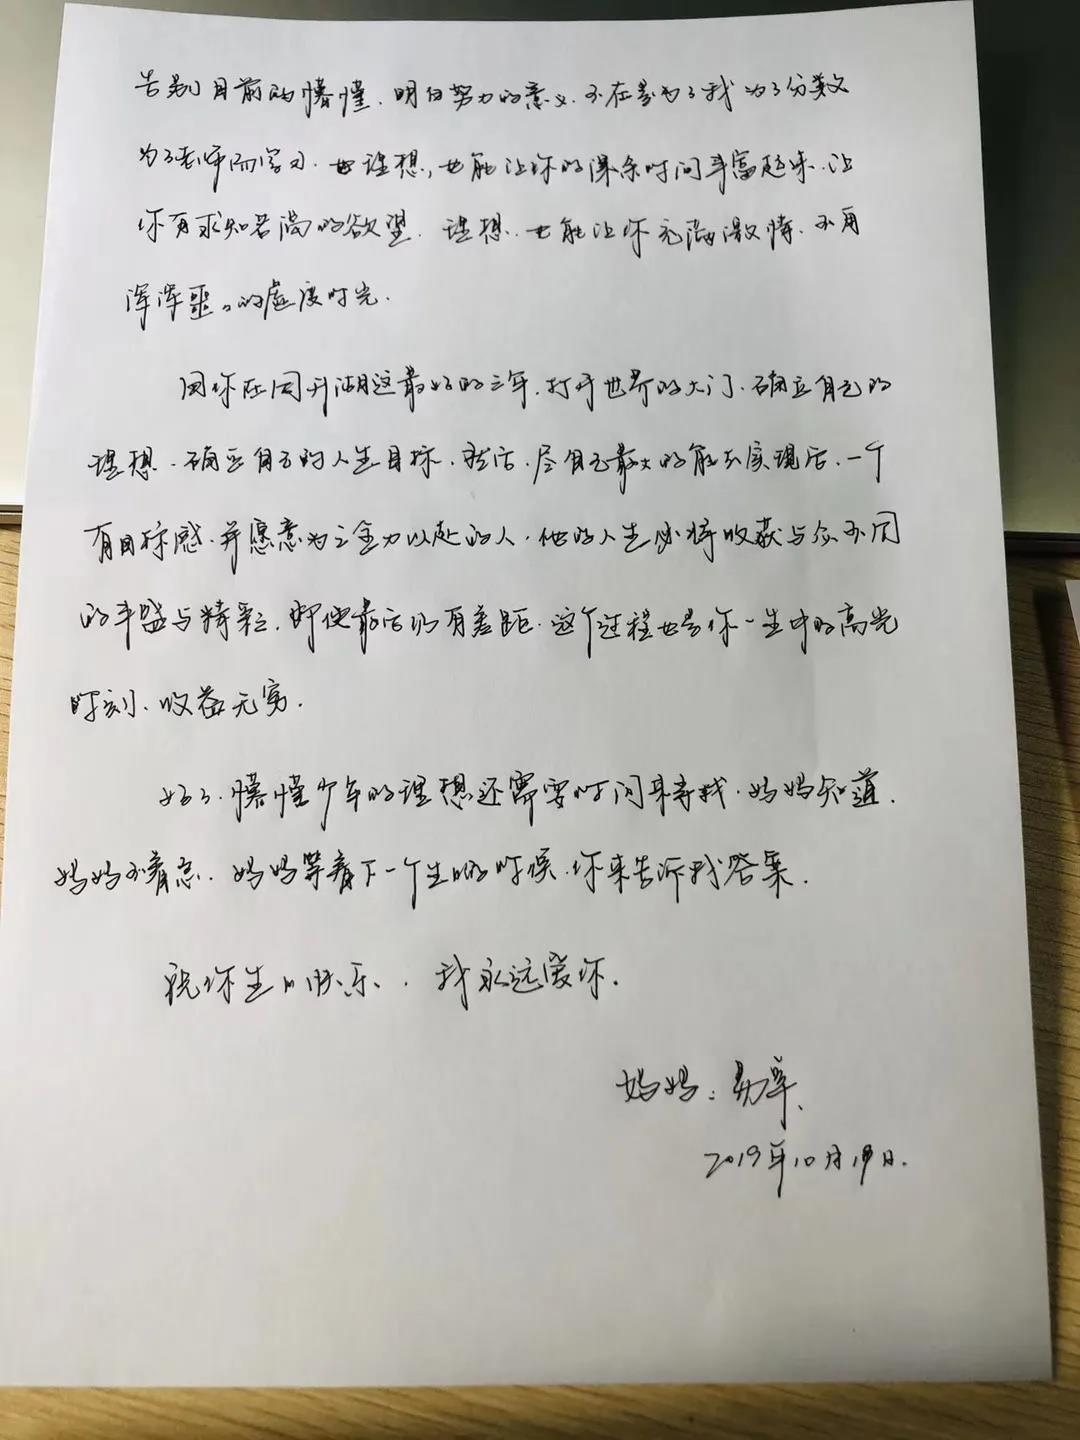 告别目前的懵懂，明白努力的意义，不在是为了我为了分数
为了老师而学习，也理想，也能让你的课余时间丰富起来，让
你有求知若渴的欲望，理想，也能让你充满激情，不用
浑浑噩。的虚度时光。
用你在周升湖这最好的三年，打开世界的大门，确立自己的
理想，确立自己的人生目标，然后，尽自己最大的能力实现它，一个
有目标感，并愿意为之全力以赴的人，他的人生必将收获与众不同
的丰盛与精彩，即使最后仍有差距，这个过程也是你一生中的高光
时刻，收益无穷。
好了，懵懂少年的理想还需要时间来寻找，妈妈知道，
妈妈不着急，妈妈等着下一个生日的时候，你来告诉我答案。
祝你生日快乐，我永远爱你。
妈妈：
2019年10月19日.